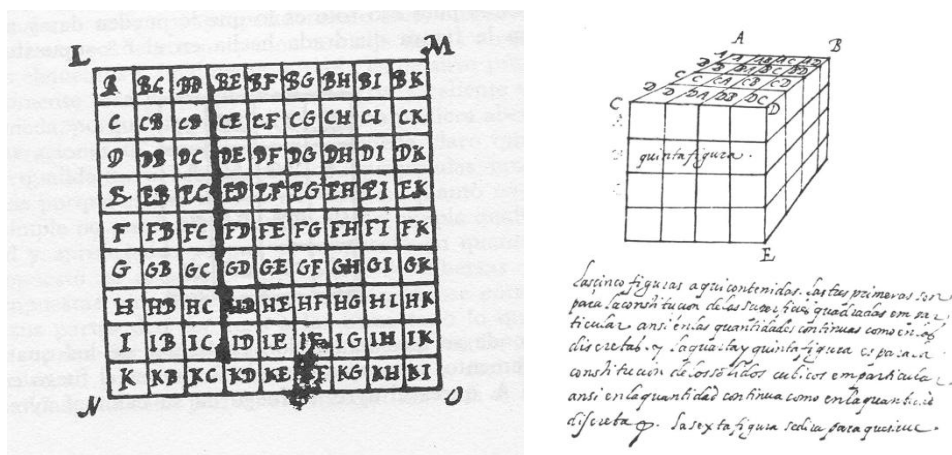 L M
B BC BD BE BF BG BH BI BK
C CB CD CE CF CG CH CI CK
D DB DC DE DF DG DH DI DK
E EB EC ED EF EG EH EI EK
F FB FC FD FE FG FH FI FK
G GB GC GD GE GF GH GI GK
H HB HC HD HE HF HG HI HK
I IB IC ID IE IF IG IH IK
K KB KC KD KE F KG KH KI
N O
A B
C D
quinta figura.
E
Las cinco figuras aqui contenidas. Las tres primeras son
para la constitucion de las superficies quadradas em par
ticular ansi en las quantidades continuas como en las
discretas. y la quarta y quinta figura es para la
constitucion de los solidos cubicos em particular
ansi en la quantidad continua como en la quantidad
discreta. La sexta figura sedira para que sirve.